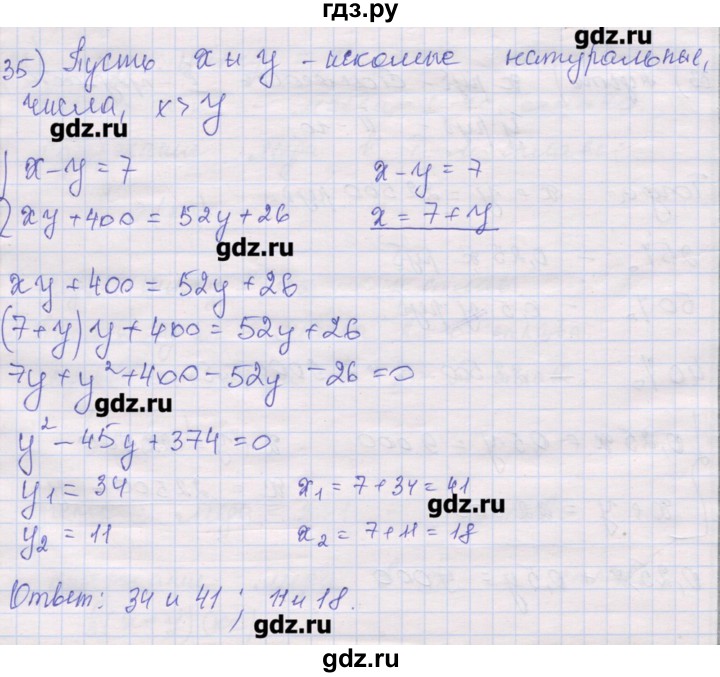 гдз.ру
gdz.ru
35) Пусть x и y - искомые натуральные,
числа, x > y
gdz.ru
1) x - y = 7 x - y = 7
2) xy + 400 = 52y + 26 x = 7 + y
gdz.ru
xy + 400 = 52y + 26
(7 + y) y + 400 = 52y + 26
7y + y² + 400 - 52y - 26 = 0
gdz.ru
y² - 45y + 374 = 0
y₁ = 34 x₁ = 7 + 34 = 41
gdz.ru
y₂ = 11 x₂ = 7 + 11 = 18
Ответ: 34 и 41 ; 11 и 18.
gdz.ru
gdz.ru